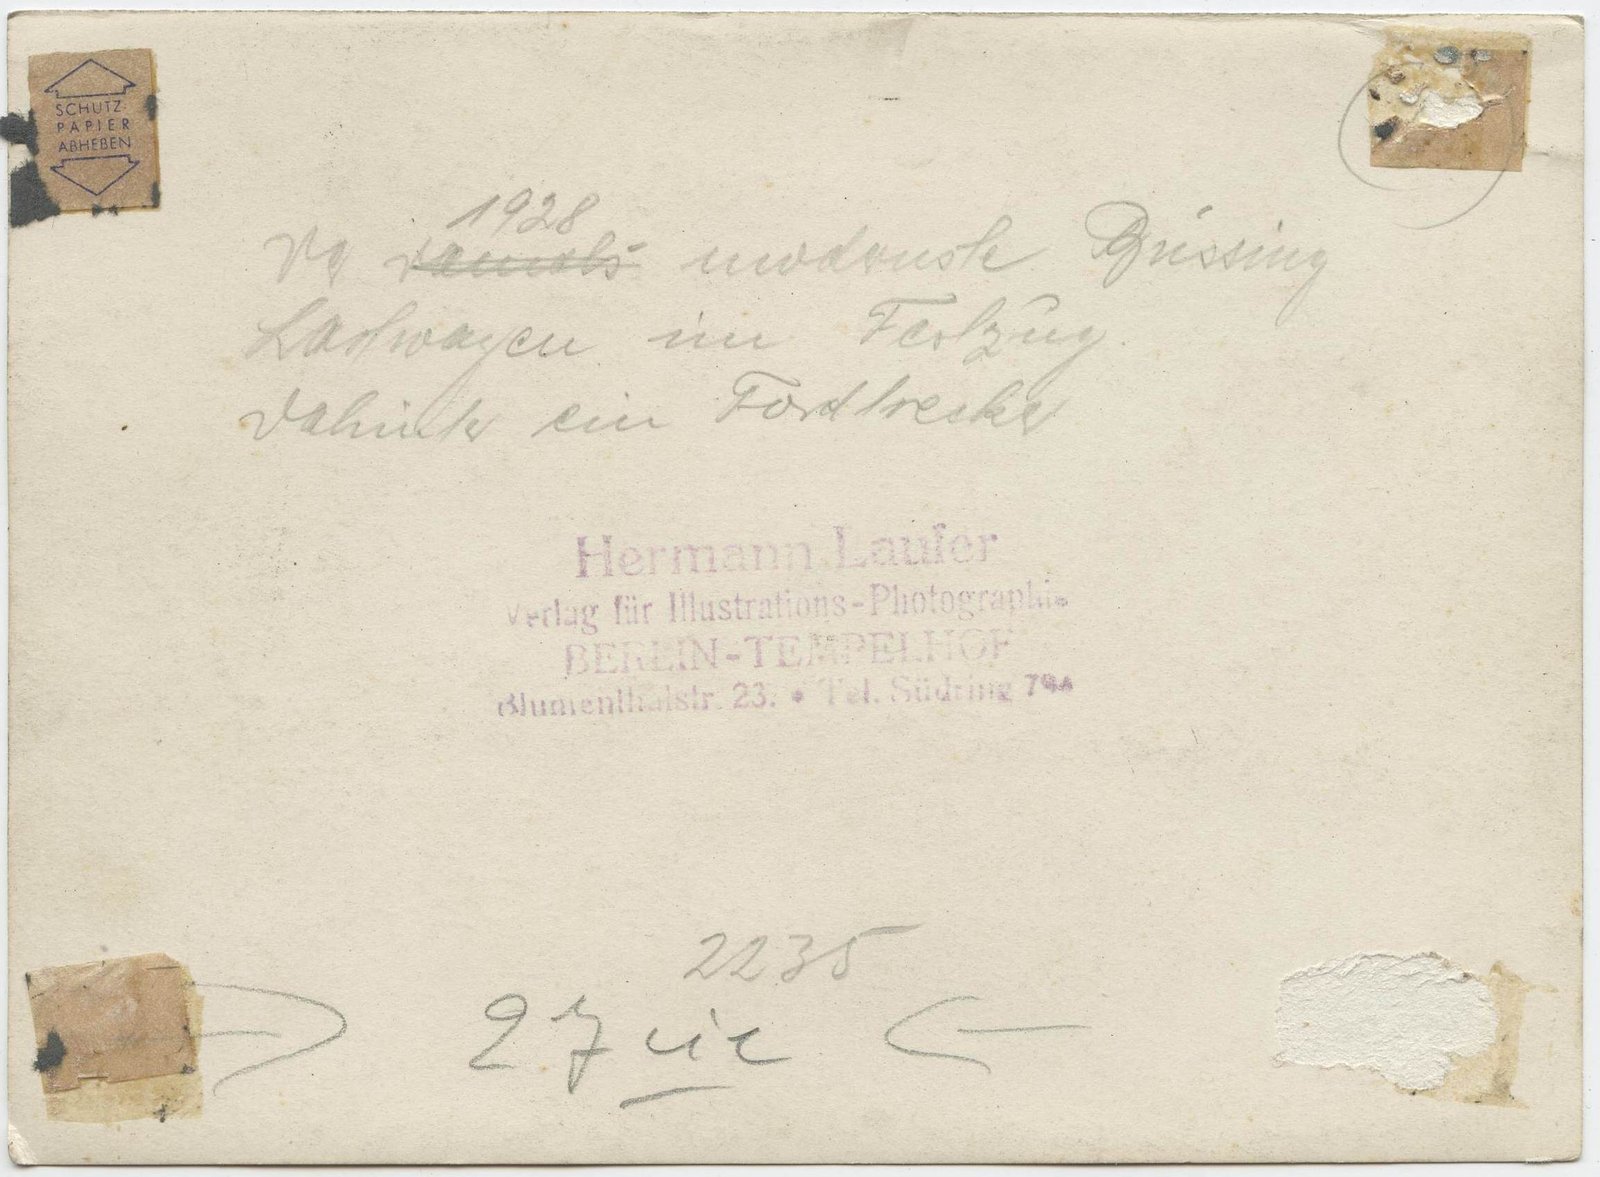 SCHUTZ-
PAPIER
ABHEBEN
1928
Da damals modernste Büssing
Lastwagen im Festzug.
Dahinter ein Fordtrecker
Hermann Laufer
Verlag für Illustrations-Photographie
BERLIN-TEMPELHOF
Blumenthalstr. 23. • Tel. Südring 794
2235
27